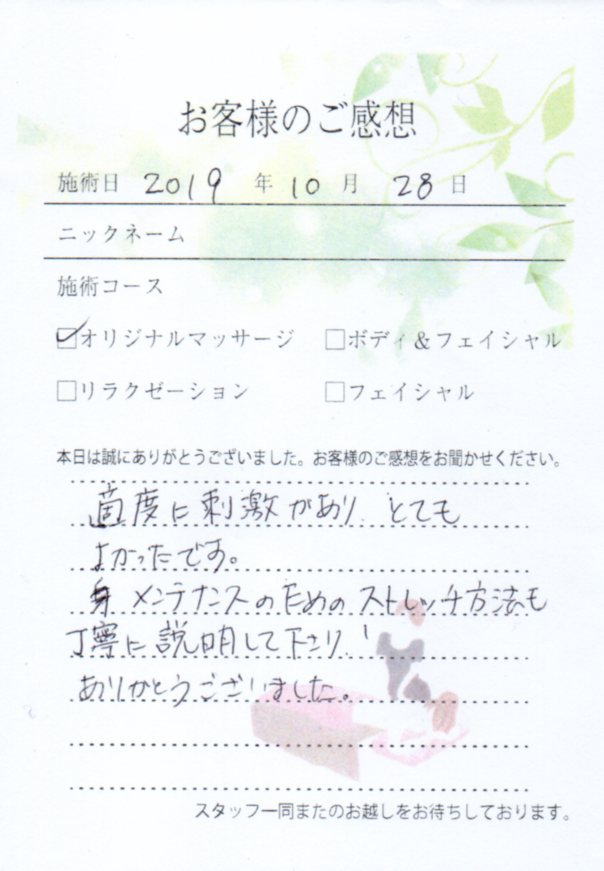 お客様のご感想
施術日 2019 年 10 月 28 日
ニックネーム
施術コース
☑オリジナルマッサージ □ボディ＆フェイシャル
□リラクゼーション □フェイシャル
本日は誠にありがとうございました。お客様のご感想をお聞かせください。
適度に刺激があり、とても
よかったです。
メンテナンスのためのストレッチ方法も
丁寧に説明して下さり、
ありがとうございました。
スタッフ一同またのお越しをお待ちしております。